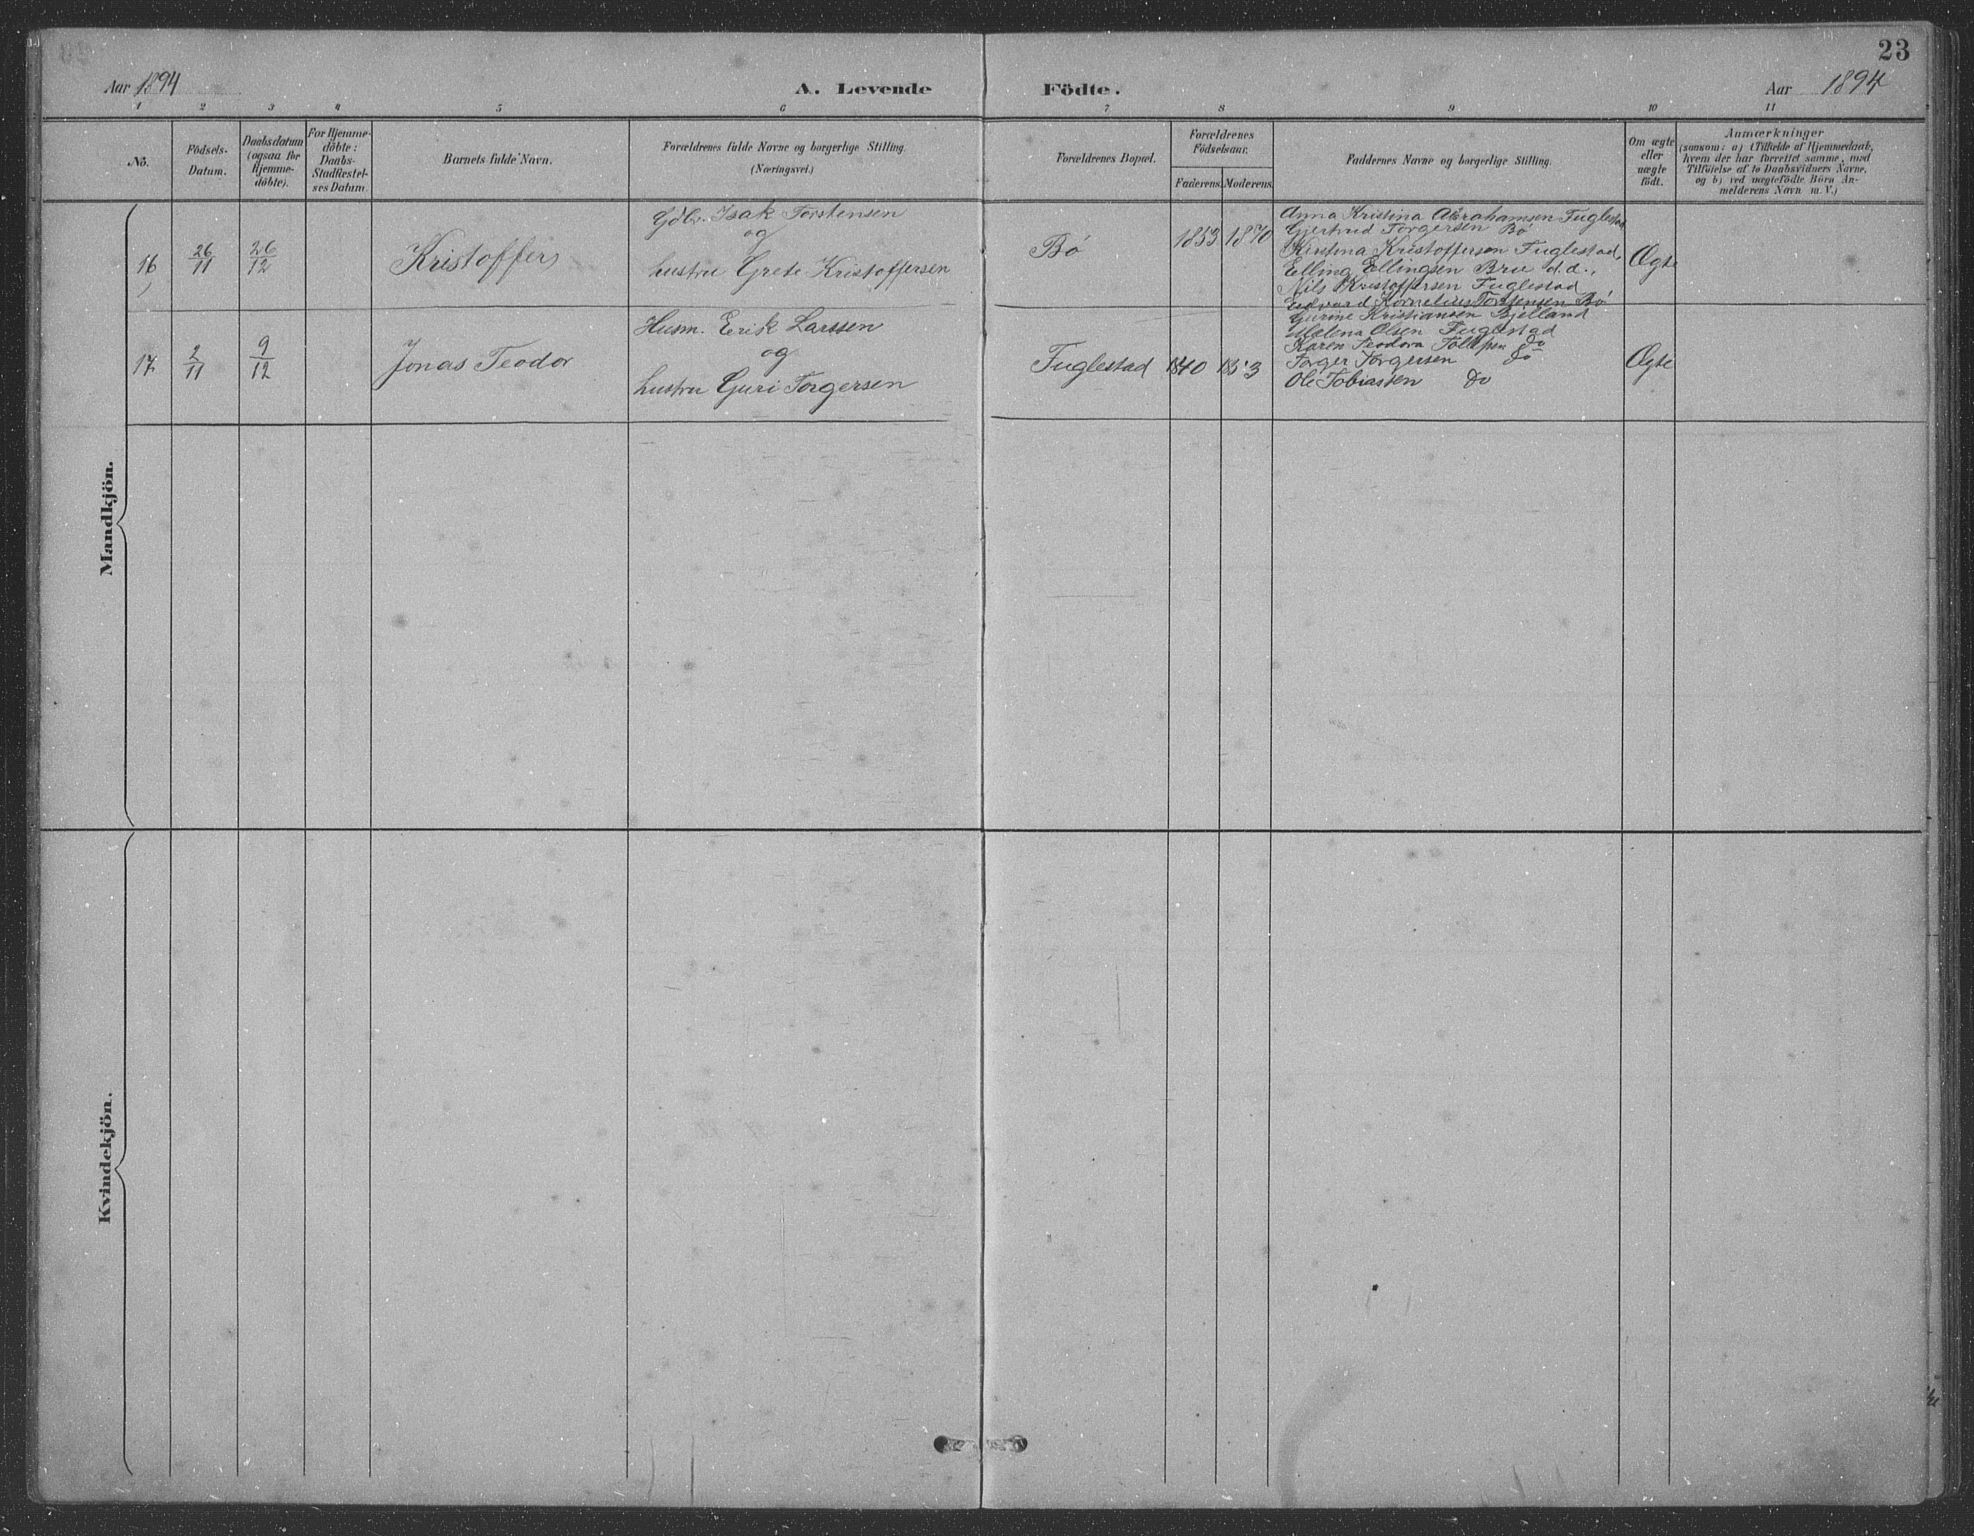 23
Aar 1894
A. Levende Födte.
Aar 1894
1 2 3 4 5 6 7 8 9 10 11
No.
Födsels-
Datum.
Daabsdatum
(ogsaa for
Hjemme-
döbte).
For Hjemme-
döbte:
Daabs-
Stadfæstel-
ses Datum.
Barnets fulde Navn.
Forældrenes fulde Navne og borgerlige Stilling.
(Næringsvei.)
Forældrenes Bopæl.
Forældrenes
Födselsaar.
Faderens. Moderens.
Faddernes Navne og borgerlige Stilling.
Om ægte
eller
uægte
födt.
Anmærkninger
(saasom: a) i Tilfælde af Hjemmedaab,
hvem der har forrettet samme, med
Tilföielse af to Daabsvidners Navne,
og b) ved uægtefödte Börn An-
melderens Navn m. V.)
Mandkjön.
16
26/11
26/12
Kristoffer
Gdbr. Isak Torstensen
og
hustru Grete Kristoffersen
Bø
1853 1870
Anna Kristina Abrahamsen Fuglestad
Gjertrud Torgersen Bø
Kirstina Kristoffersen Fuglestad,
Elling Ellingsen Bru d.d.,
Nils Kristoffersen Fuglestad
Edvard Kornelius Torstensen Bø
Ægte
17
2/11
9/12
Jonas Teodor
Husm. Erik Larssen
og
hustru Guri Torgersen
Fuglestad
1840 1853
Gurine Kristiansen Bjelland
Malena Olsen Fuglestad
Karen Teodora Tollefsen do
Torger Torgersen do
Ole Tobiassen do
Ægte
Kvindekjön.